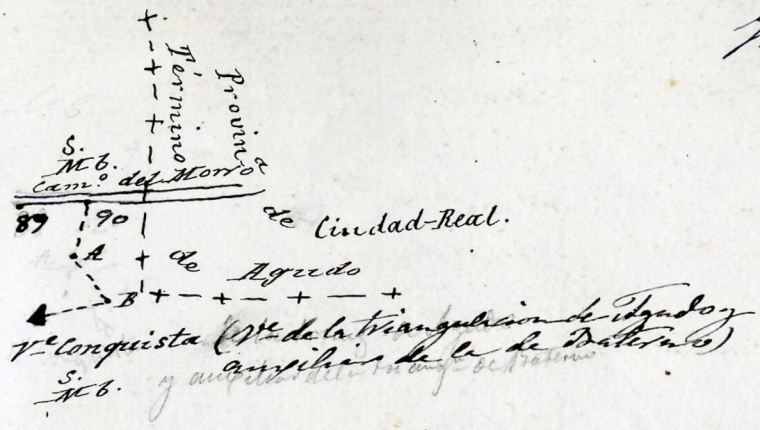 Término
Provin.ª
S.
M b.
Cam.º del Morro
89
90
de Ciudad-Real.
A
de Agudo
B
V.e Conquista (V.e de la triangulacion de Agudo y
auxiliar de la de Baterno)
y auxiliar de la triang.n de Baterno
S.
M b.